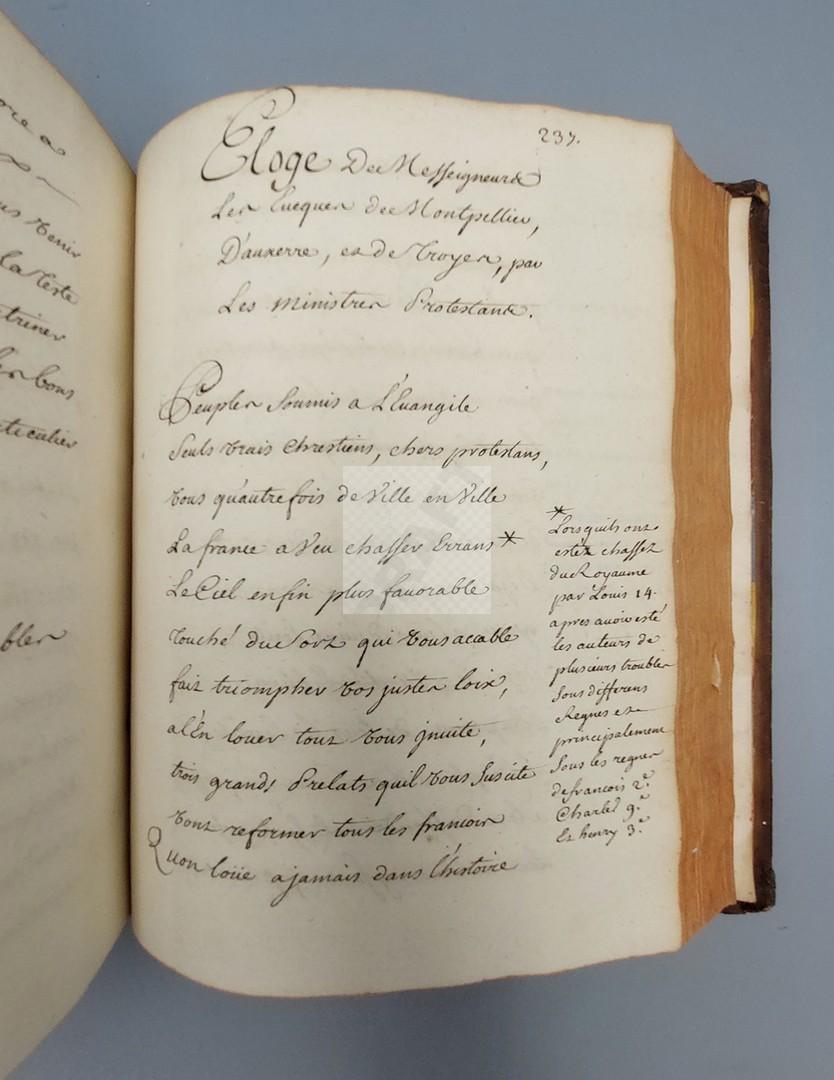 237.
Eloge De Messeigneurs
Les Eveques de Montpellier,
D'auxerre, et de Troyes, par
Les ministres Protestants.
Peuples soumis a L'Euangile
Seuls vrais Chrestiens, chers protestans,
vous qu'autrefois de Ville en Ville
La france a Veu chasser Errans *
Le Ciel enfin plus favorable
touché du Sort qui vous accable
fait triompher vos justes loix,
a l'En louer tout vous jnuite,
trois grands Prelats quil vous suscite
vont reformer tous les francois
Quon loüe ajamais dans l'histoire
*
Lorsquils ont
estéz chassez
du Royaume
par Louis 14.
apres avoir esté
les auteurs de
plusieurs troubles
sous differens
Regnes et
principalement
sous les regnes
de francois 2.e
Charles 9.e
Et henry 3.e
ous tenir
la teste
trines
bons
ticulier
bles